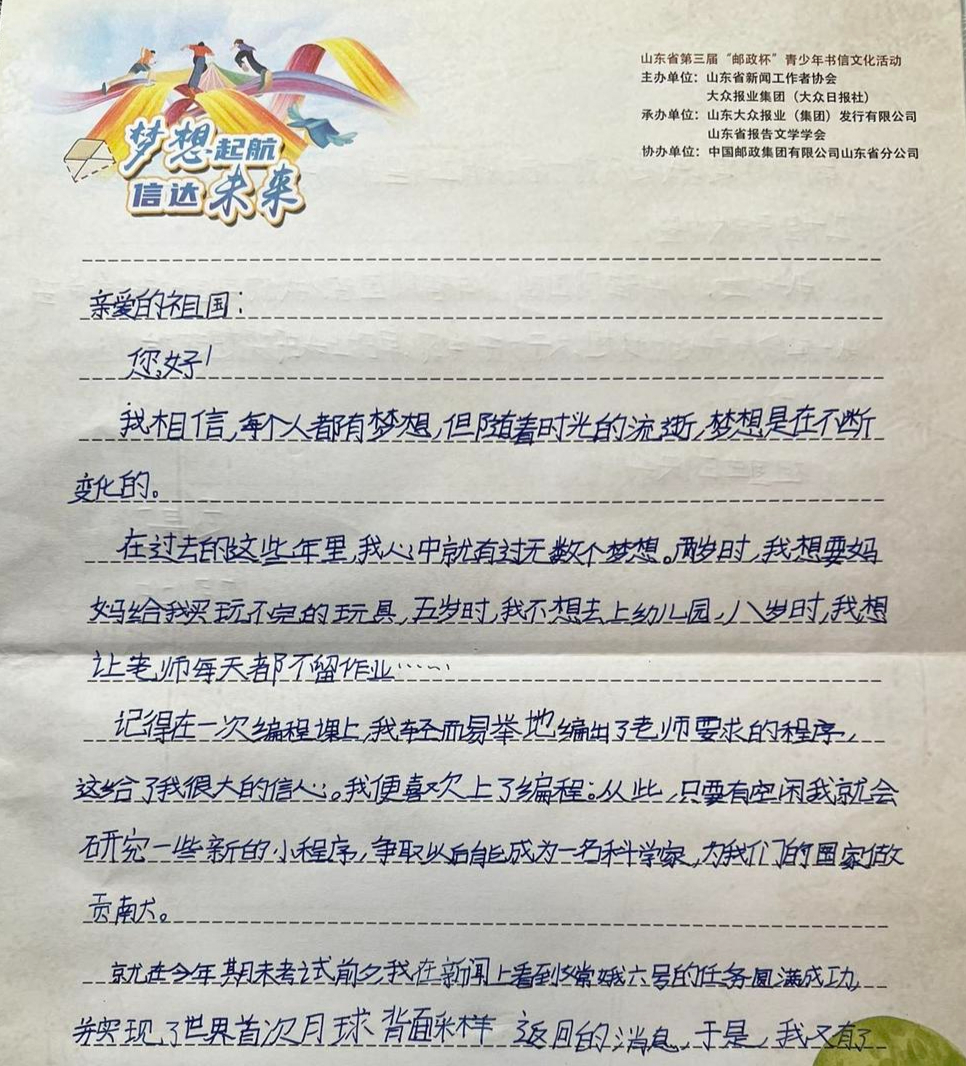 梦想起航
信达未来
山东省第三届“邮政杯”青少年书信文化活动
主办单位：山东省新闻工作者协会
大众报业集团（大众日报社）
承办单位：山东大众报业（集团）发行有限公司
山东省报告文学学会
协办单位：中国邮政集团有限公司山东省分公司
亲爱的祖国：
您好！
我相信,每个人都有梦想,但随着时光的流逝,梦想是在不断
变化的。
在过去的这些年里,我心中就有过无数个梦想。两岁时,我想要妈
妈给我买玩不完的玩具,五岁时,我不想去上幼儿园,八岁时,我想
让老师每天都不留作业……
记得在一次编程课上,我轻而易举地编出了老师要求的程序,
这给了我很大的信心。我便喜欢上了编程。从此,只要有空闲我就会
研究一些新的小程序,争取以后能成为一名科学家,为我们的国家做
贡献。
就在今年期末考试前夕我在新闻上看到嫦娥六号的任务圆满成功,
并实现了世界首次月球背面采样返回的消息。于是,我又有了